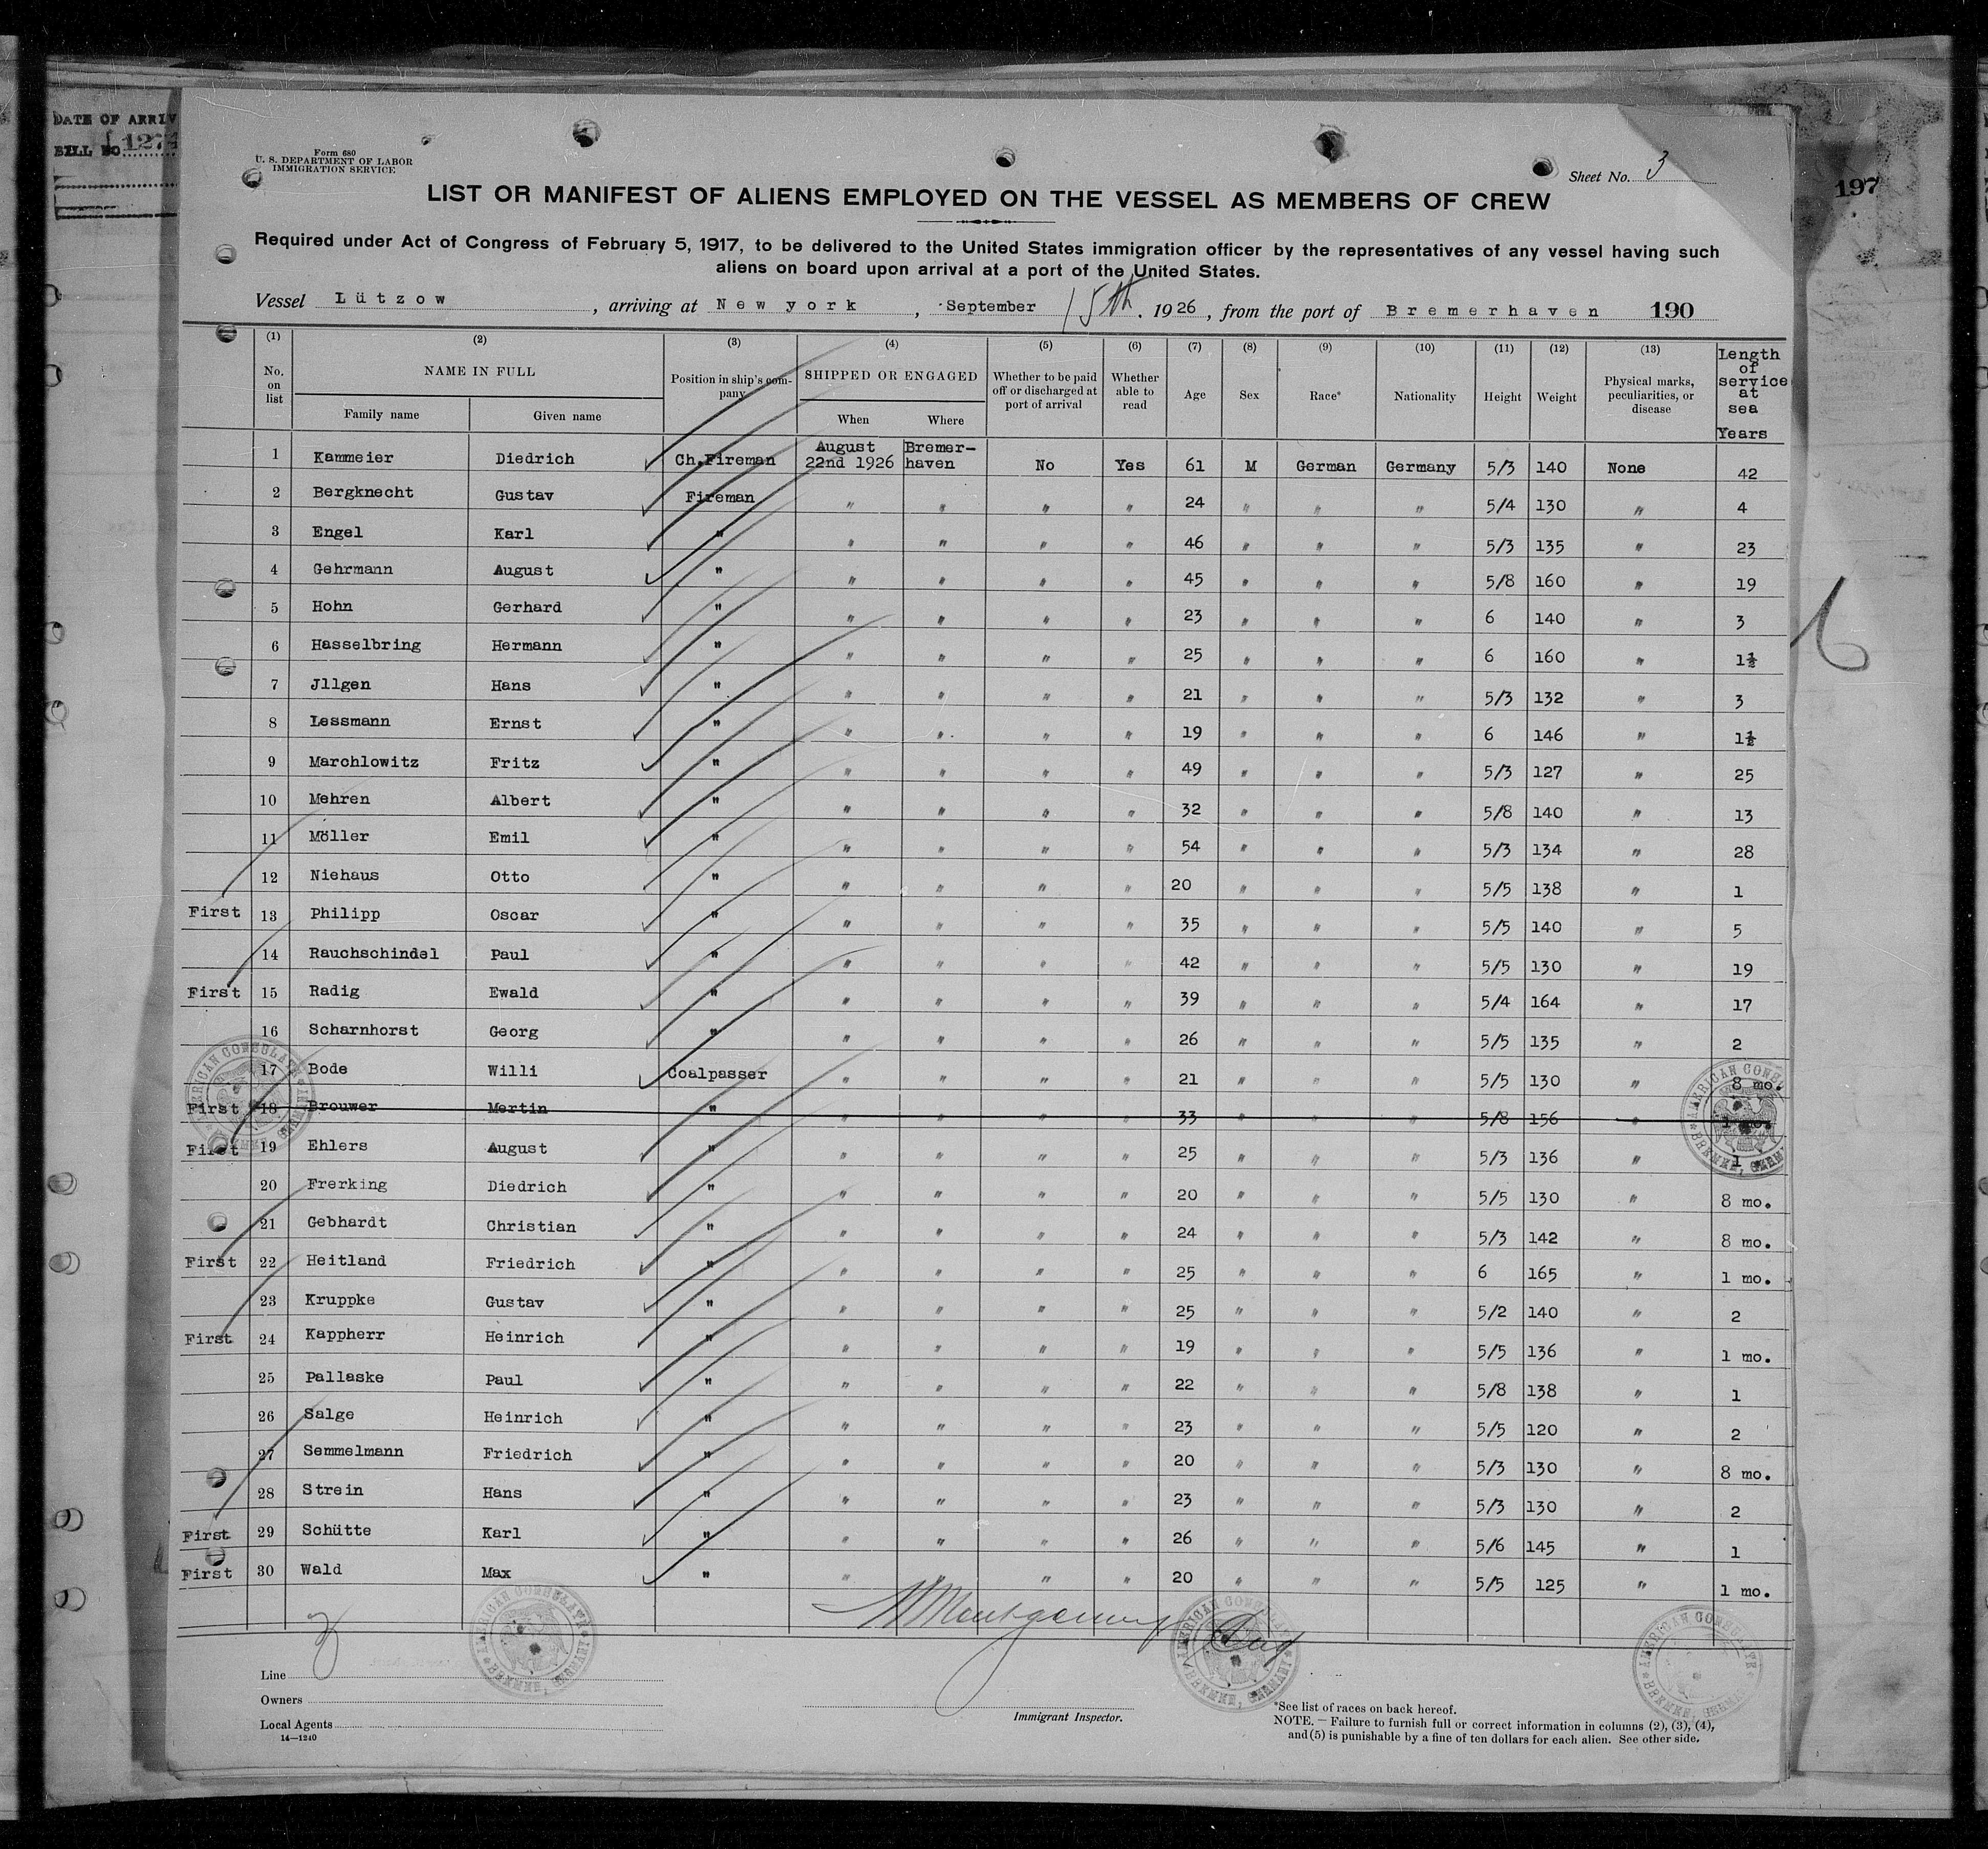 DATE OF ARRIV
BILL NO. 127
197
Form 680
U. S. DEPARTMENT OF LABOR
IMMIGRATION SERVICE
Sheet No. 3
LIST OR MANIFEST OF ALIENS EMPLOYED ON THE VESSEL AS MEMBERS OF CREW
Required under Act of Congress of February 5, 1917, to be delivered to the United States immigration officer by the representatives of any vessel having such
aliens on board upon arrival at a port of the United States.
Vessel Lützow, arriving at New york, September 15th. 1926, from the port of Bremerhaven 190
(1) (2) (3) (4) (5) (6) (7) (8) (9) (10) (11) (12) (13)
No. on list NAME IN FULL Family name Given name Position in ship's company SHIPPED OR ENGAGED When Where Whether to be paid off or discharged at port of arrival Whether able to read Age Sex Race* Nationality Height Weight Physical marks, peculiarities, or disease Length of service at sea Years
1 Kammeier Diedrich Ch.Fireman August 22nd 1926 Bremer-haven No Yes 61 M German Germany 5/3 140 None 42
2 Bergknecht Gustav Fireman " " " " 24 " " " 5/4 130 " 4
3 Engel Karl " " " " " 46 " " " 5/3 135 " 23
4 Gehrmann August " " " " " 45 " " " 5/8 160 " 19
5 Hohn Gerhard " " " " " 23 " " " 6 140 " 3
6 Hasselbring Hermann " " " " " 25 " " " 6 160 " 1½
7 Jllgen Hans " " " " " 21 " " " 5/3 132 " 3
8 Lessmann Ernst " " " " " 19 " " " 6 146 " 1½
9 Marchlowitz Fritz " " " " " 49 " " " 5/3 127 " 25
10 Mehren Albert " " " " " 32 " " " 5/8 140 " 13
11 Möller Emil " " " " " 54 " " " 5/3 134 " 28
12 Niehaus Otto " " " " " 20 " " " 5/5 138 " 1
First 13 Philipp Oscar " " " " " 35 " " " 5/5 140 " 5
14 Rauchschindel Paul " " " " " 42 " " " 5/5 130 " 19
First 15 Radig Ewald " " " " " 39 " " " 5/4 164 " 17
16 Scharnhorst Georg " " " " " 26 " " " 5/5 135 " 2
17 Bode Willi Coalpasser " " " " 21 " " " 5/5 130 " 8 mo.
First 18 Brouwer Mertin " " " " " 33 " " " 5/8 156 "
First 19 Ehlers August " " " " " 25 " " " 5/3 136 " 1
20 Frerking Diedrich " " " " " 20 " " " 5/5 130 " 8 mo.
21 Gebhardt Christian " " " " " 24 " " " 5/3 142 " 8 mo.
First 22 Heitland Friedrich " " " " " 25 " " " 6 165 " 1 mo.
23 Kruppke Gustav " " " " " 25 " " " 5/2 140 " 2
First 24 Kappherr Heinrich " " " " " 19 " " " 5/5 136 " 1 mo.
25 Pallaske Paul " " " " " 22 " " " 5/8 138 " 1
26 Salge Heinrich " " " " " 23 " " " 5/5 120 " 2
27 Semmelmann Friedrich " " " " " 20 " " " 5/3 130 " 8 mo.
28 Strein Hans " " " " " 23 " " " 5/3 130 " 2
First 29 Schütte Karl " " " " " 26 " " " 5/6 145 " 1
First 30 Wald Max " " " " " 20 " " " 5/5 125 " 1 mo.
AMERICAN CONSULATE
BREMEN, GERMANY
Montgomery
Line
Owners
Local Agents
14—1240
Immigrant Inspector.
*See list of races on back hereof.
NOTE. — Failure to furnish full or correct information in columns (2), (3), (4),
and (5) is punishable by a fine of ten dollars for each alien. See other side.